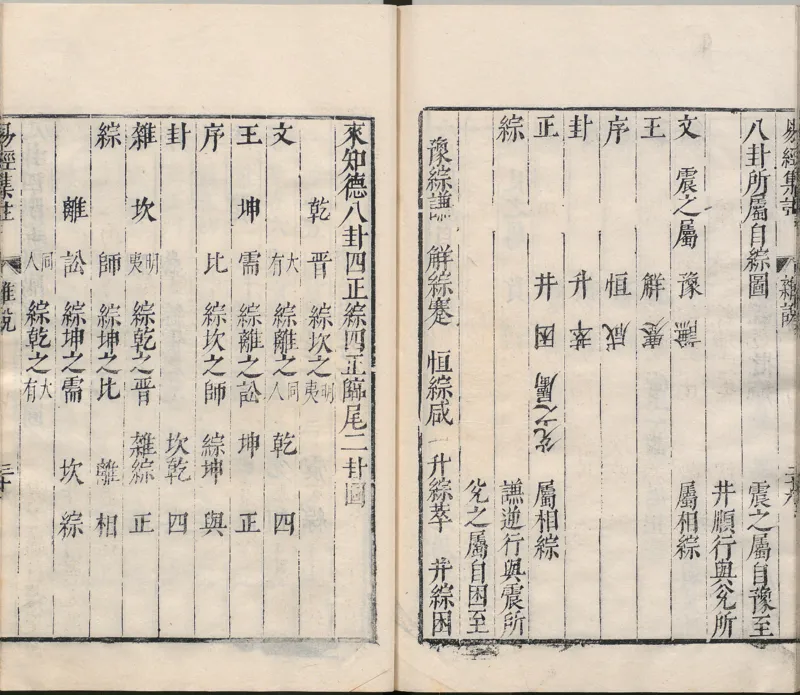 易經集註 雜說
八卦所屬自綜圖 震之屬自豫至
井順行與兌所
文 震之屬 豫 謙 屬相綜
王 解 蹇
序 恒 咸
卦 升 萃
正 井 困 兌之屬 屬相綜
綜 謙逆行與震所
兌之屬自困至
豫綜謙 解綜蹇 恒綜咸 升綜萃 井綜困
來知德八卦四正綜四正臨尾二卦圖
乾 晉 綜坎之明夷
文 大有 綜離之同人 乾 四
王 坤 需 綜離之訟 坤 正
序 比 綜坎之師 綜坤 與
卦 坎乾 四
雜 坎 明夷 綜乾之晉 雜綜 正
綜 師 綜坤之比 離 相
離 訟 綜坤之需 坎 綜
同人 綜乾之大有
易經集註 雜說 三十